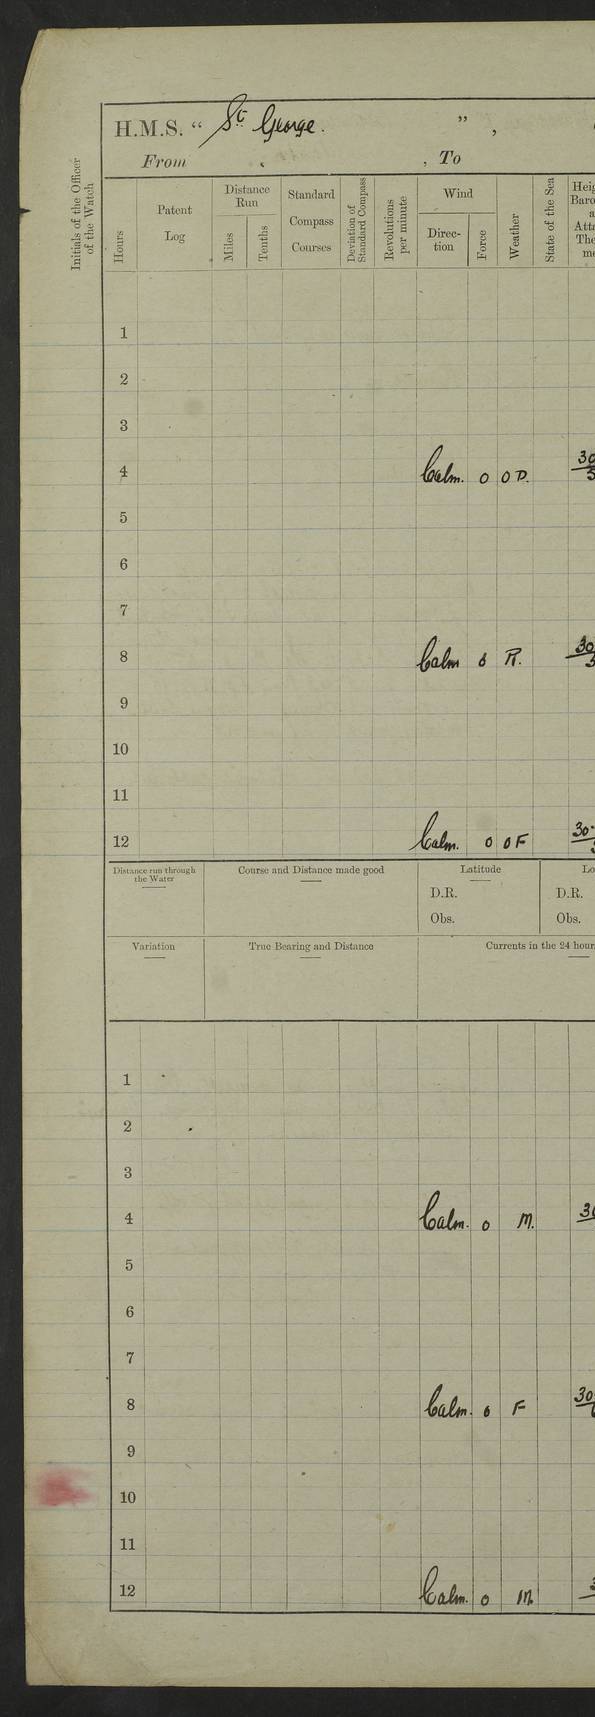 H.M.S. “ St George. ” ,
From , To
Initials of the Officer of the Watch
Hours
Patent Log
Distance Run
Miles
Tenths
Standard Compass Courses
Deviation of Standard Compass
Revolutions per minute
Wind
Direc-tion
Force
Weather
State of the Sea
1
2
3
4 Calm. 0 O D. 30
5
6
7
8 Calm 0 R. 30
9
10
11
12 Calm. 0 O F 30
Distance run through the Water
Course and Distance made good
Latitude
D.R. D.R.
Obs. Obs.
Variation
True Bearing and Distance
Currents in the 24 hour
1
2
3
4 Calm. 0 M.
5
6
7
8 Calm. 0 F 30
9
10
11
12 Calm. 0 M